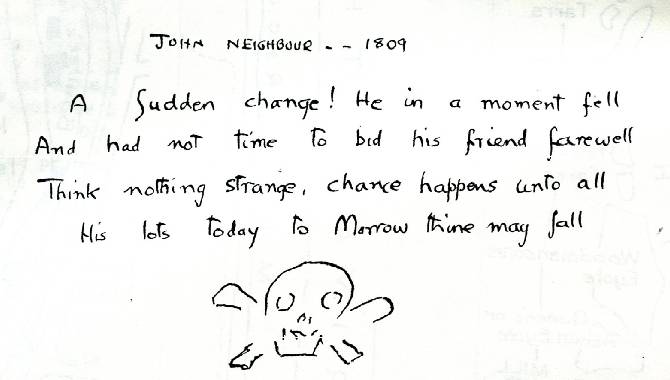 JOHN NEIGHBOUR - - 1809
A Sudden change! He in a moment fell
And had not time to bid his friend farewell
Think nothing strange, chance happens unto all
His lots today to Morrow thine may fall